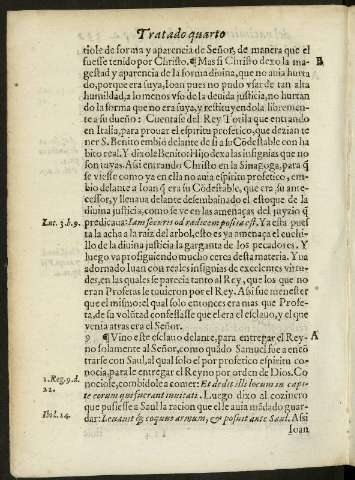 Tratado quarto
tiole de forma y aparencia de Señor, de manera que el
fuesse tenido por Christo. ¶ Mas si Christo dexo la ma-
gestad y aparencia de la forma diuina, que no auia hurta
do, porque era suya, con pues no pudo vsar de tan alta
humildad, a lo menos vso de la deuida justicia, no hurtan
do la forma que no era suya, y restituyendola libremen-
te a su dueño: Cuentase del Rey Totila que entrando
en Italia, para prouar el espiritu profetico, que dezian te
ner S. Benito embiò delante de si a su Cõdestable con ha
bito real. Y dixole Benito: Hijo dexa las insignias que no
son tuyas. Assi entrando Christo en la Sinagoga, para q̃
se viesse como ya en ella no auia espiritu profetico, em-
bio delante a Ioan q̃ era su Cõdestable, que era su ante-
cessor, y lleuaua delante desembainado el estoque de la
diuina justicia, como se ve en las amenaças del juyzio q̃
predicaua: Iam securis ad radicem posita est. Ya està pues
ta la acha a la raiz del arbol, esto es ya amenaça el cuchi-
llo de la diuina justicia la garganta de los pecadores. Y
luego va prosiguiendo mucho cerca desta materia. Yua
adornado Iuan con reales insignias de excelentes virtu-
des, en las quales se parecia tanto al Rey, que los que no
eran Profetas le tuuieron por el Rey. Assi fue menester
que el mismo: el qual solo entonces era mas que Profe-
ta, de su volũtad confessasse que el era el esclauo, y el que
venia atras era el Señor.
9 ¶ Vino este esclauo delante, para entregar el Rey-
no solamente al Señor, como quãdo Samuel fue a encõ
trarse con Saul, al qual solo el por profetico espiritu co-
nocia, para le entregar el Reyno por orden de Dios. Co
nociole, combidole a comer: Et dedit illi locum in capi-
te eorum qui fuerant inuitati. Luego dixo al cozinero
que pusiesse a Saul la racion que el le auia mãdado guar-
dar: Leuauit &amp; coquus armum, &amp; posuit ante Saul. Assi
Ioan
B
Luc. 3. b. 9.
A
1. Reg. 9. d.
22.
Ibid. 24.